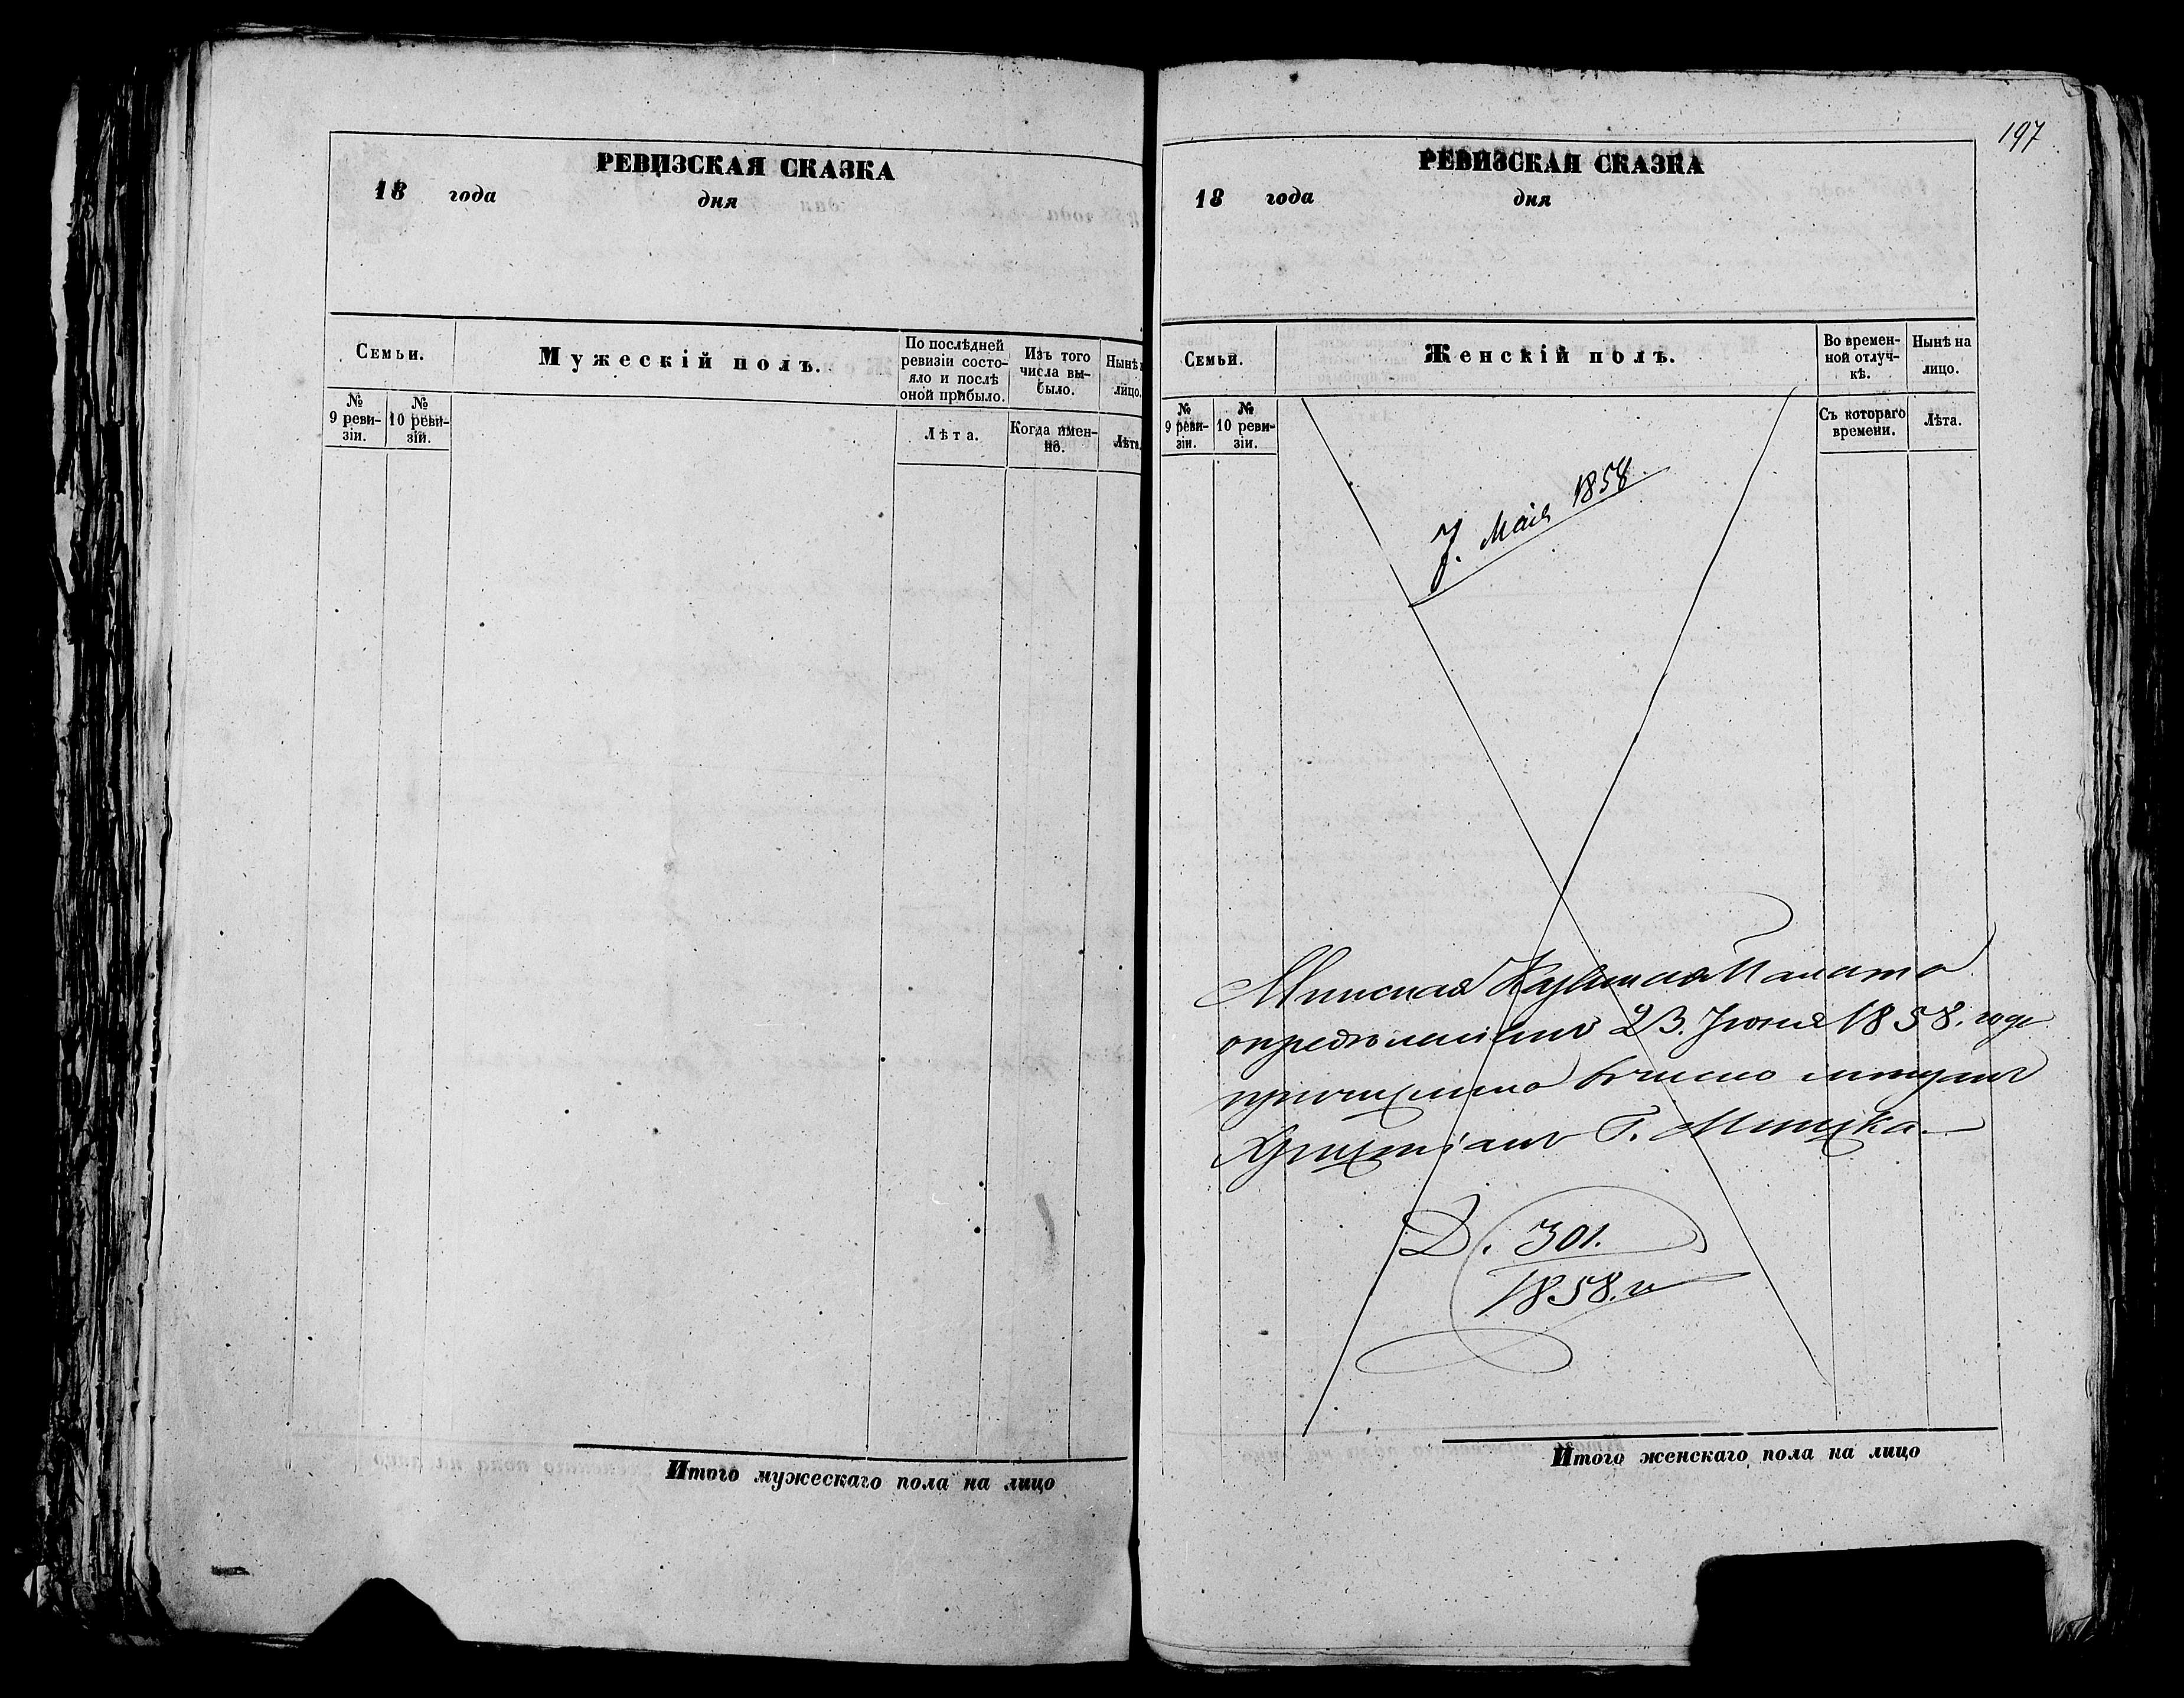 РЕВИЗСКАЯ СКАЗКА
18 года дня
Семьи.
Мужескій полъ.
По послѣдней ревизіи состояло и послѣ оной прибыло.
Изъ того числа выбыло.
Нынѣ
лицо.
№ 9 ревизіи.
№ 10 ревизіи.
Лѣта.
Когда именно.
Лѣта.
Итого мужескаго пола на лицо
197
РЕВИЗСКАЯ СКАЗКА
18 года дня
Семьи.
Женскій полъ.
Во временной отлучкѣ.
Нынѣ на лицо.
№ 9 ревизіи.
№ 10 ревизіи.
Съ котораго времени.
Лѣта.
7. Маія 1858
Минская Казенная Палата
опредѣленіемъ 23. Іюня 1858. года
причислила въ число мѣщанъ
Христіанъ Г. Минска.
Д. 301.
1858. г
Итого женскаго пола на лицо